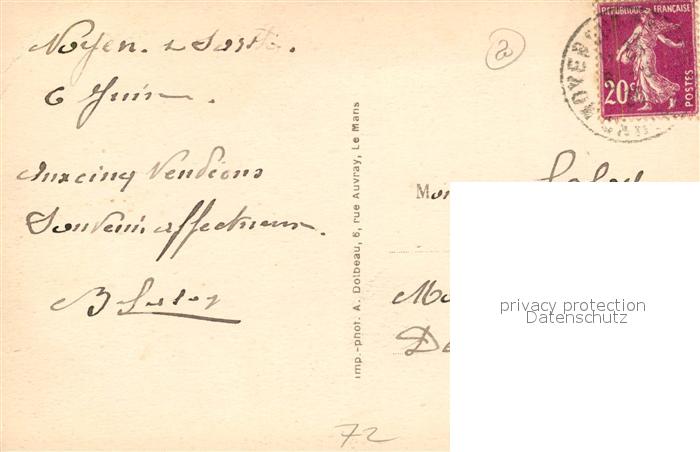 Noyen. s Sarthe.
6 Juin.
Aux cinq Vendéens
Souvenir affectueux.
Imp.-phot. A. Dolbeau, 6, rue Auvray, Le Mans
RÉPUBLIQUE FRANÇAISE
20c
POSTES
NOYEN
Mon
Mo
De
privacy protection
Datenschutz
72